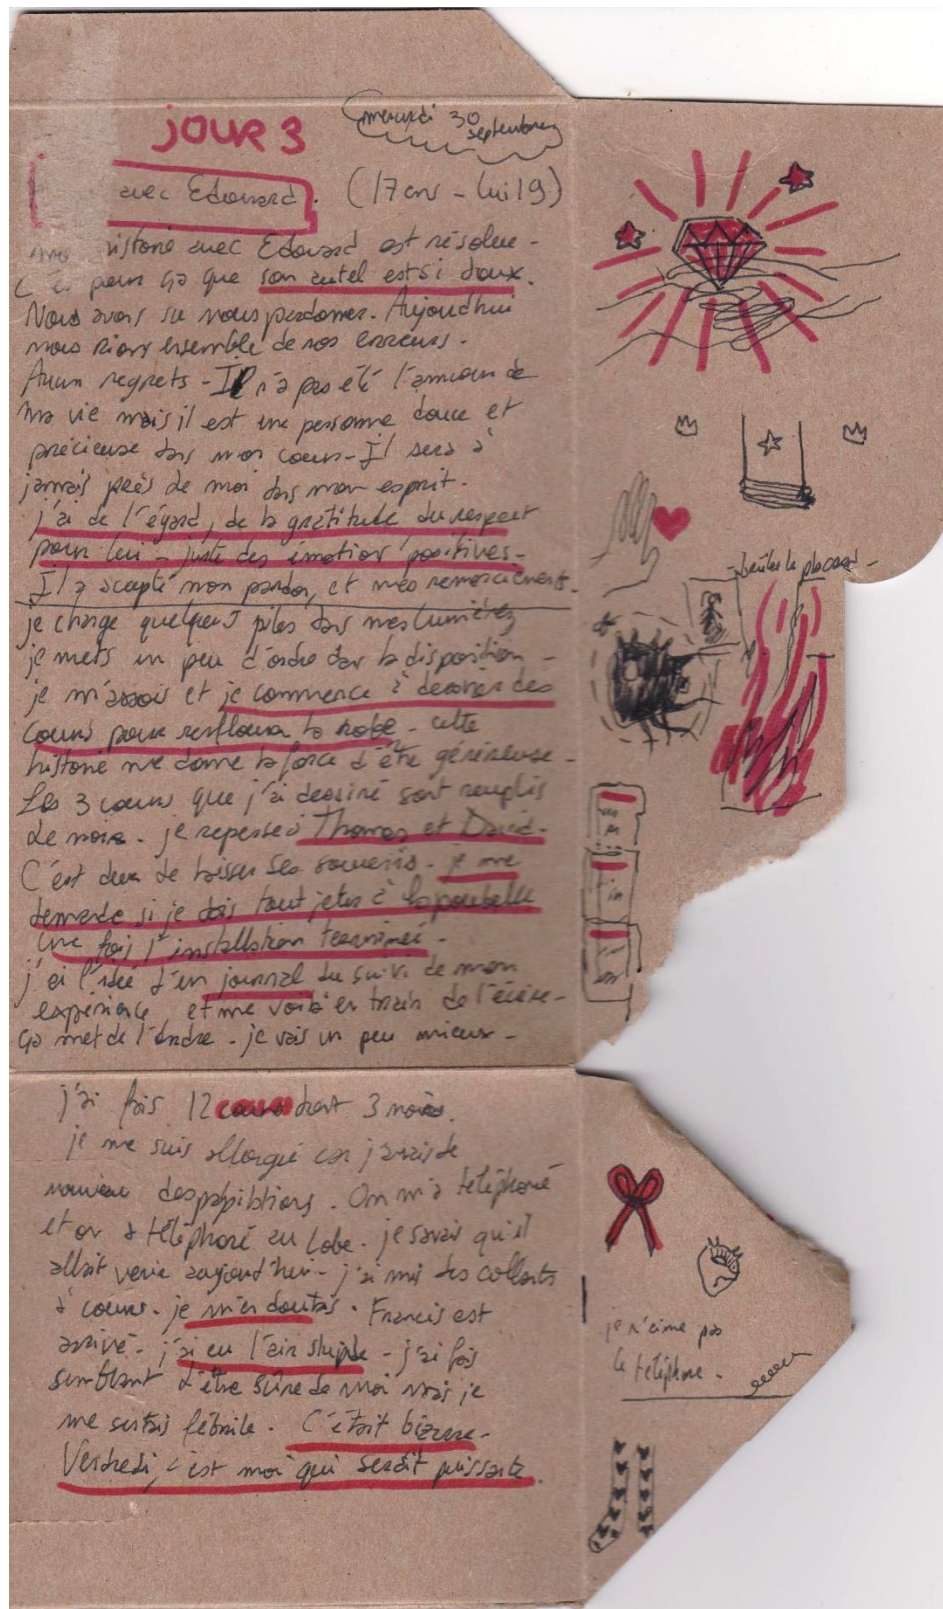 JOUR 3
mercredi 30 septembre
avec Edouard. (17 ans - lui 19)
histoire avec Edouard est résolue -
pour ça que son autel est si doux.
Nous avons su nous pardonner. Aujourd'hui
nous rions ensemble de nos erreurs -
Aucun regrets - Il n'a pas été l'amour de
ma vie mais il est une personne douce et
précieuse dans mon coeur - Il sera à
jamais près de moi dans mon esprit.
j'ai de l'égard, de la gratitude du respect
pour lui - juste des émotion positives -
Il a accepté mon pardon, et mes remerciements.
je change quelques piles dans mes lumières
je mets un peu d'ordre dans la disposition -
je m'assois et je commence à dessiner des
coeurs pour renflouer la robe - cette
histoire me donne la force d'être généreuse -
Les 3 coeurs que j'ai dessiné sont remplis
de noir. je repense à Thomas et David.
C'est dur de laisser ses souvenirs. je me
demande si je dois tout jeter à la poubelle
une fois l'installation terminée -
j'ai l'idée d'un journal du suivi de mon
expérience, et me voilà en train de l'écrire -
ça met de l'ordre - je vais un peu mieux -
j'ai fais 12 coeurs dont 3 noirs.
je me suis allongée car j'avais de
nouveau des palpitations. On m'a téléphoné
et on a téléphoné au Labo. je savais qu'il
allait venir aujourd'hui - j'ai mis des collants
à coeurs. je m'en doutais. Francis est
arrivé - j'ai eu l'air stupide - j'ai fais
semblant d'être sûre de moi mais je
me sentais fébrile. C'était bizarre -
Vendredi, c'est moi qui serait puissante.
brûler le placard -
je n'aime pas
le téléphone.